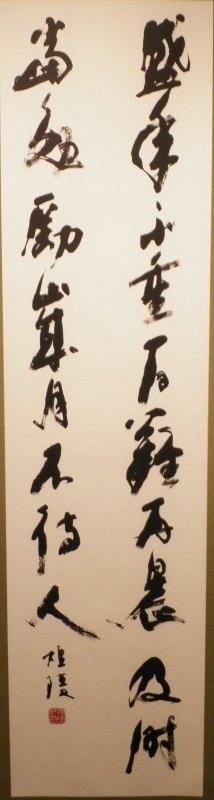 盛年不重一日難再晨及時
當勉勵歳月不待人